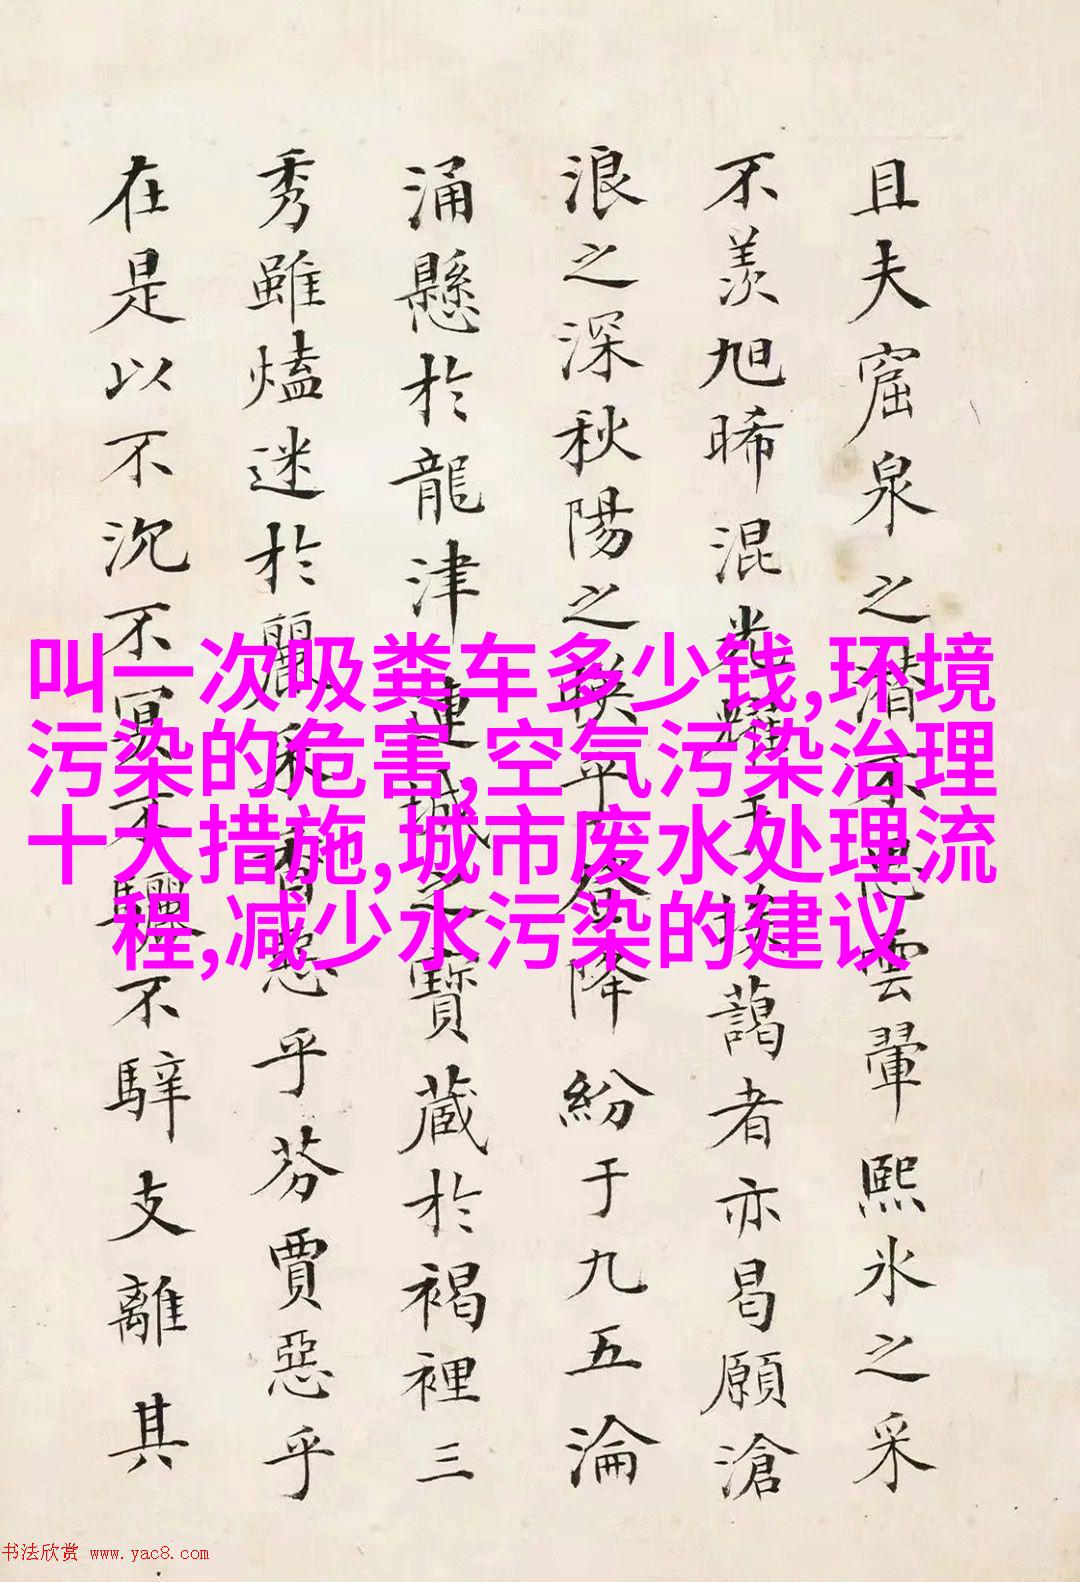 且夫窟泉之潜不思雲翬熙氷之采
不羨旭晞混光耀于埃藹者亦曷願滄
浪之深秋陽之映乎登降紛于九五淪
涌懸於龍津連城之寶藏於褐裡三
秀雖𤎅迷於麗采香惡乎芬賈惡乎
在是以不沉不冥不驪不騂支離其
叫一次吸粪车多少钱,环境
污染的危害,空气污染治理
十大措施,城市废水处理流
程,减少水污染的建议
书法欣赏 www.yac8.com